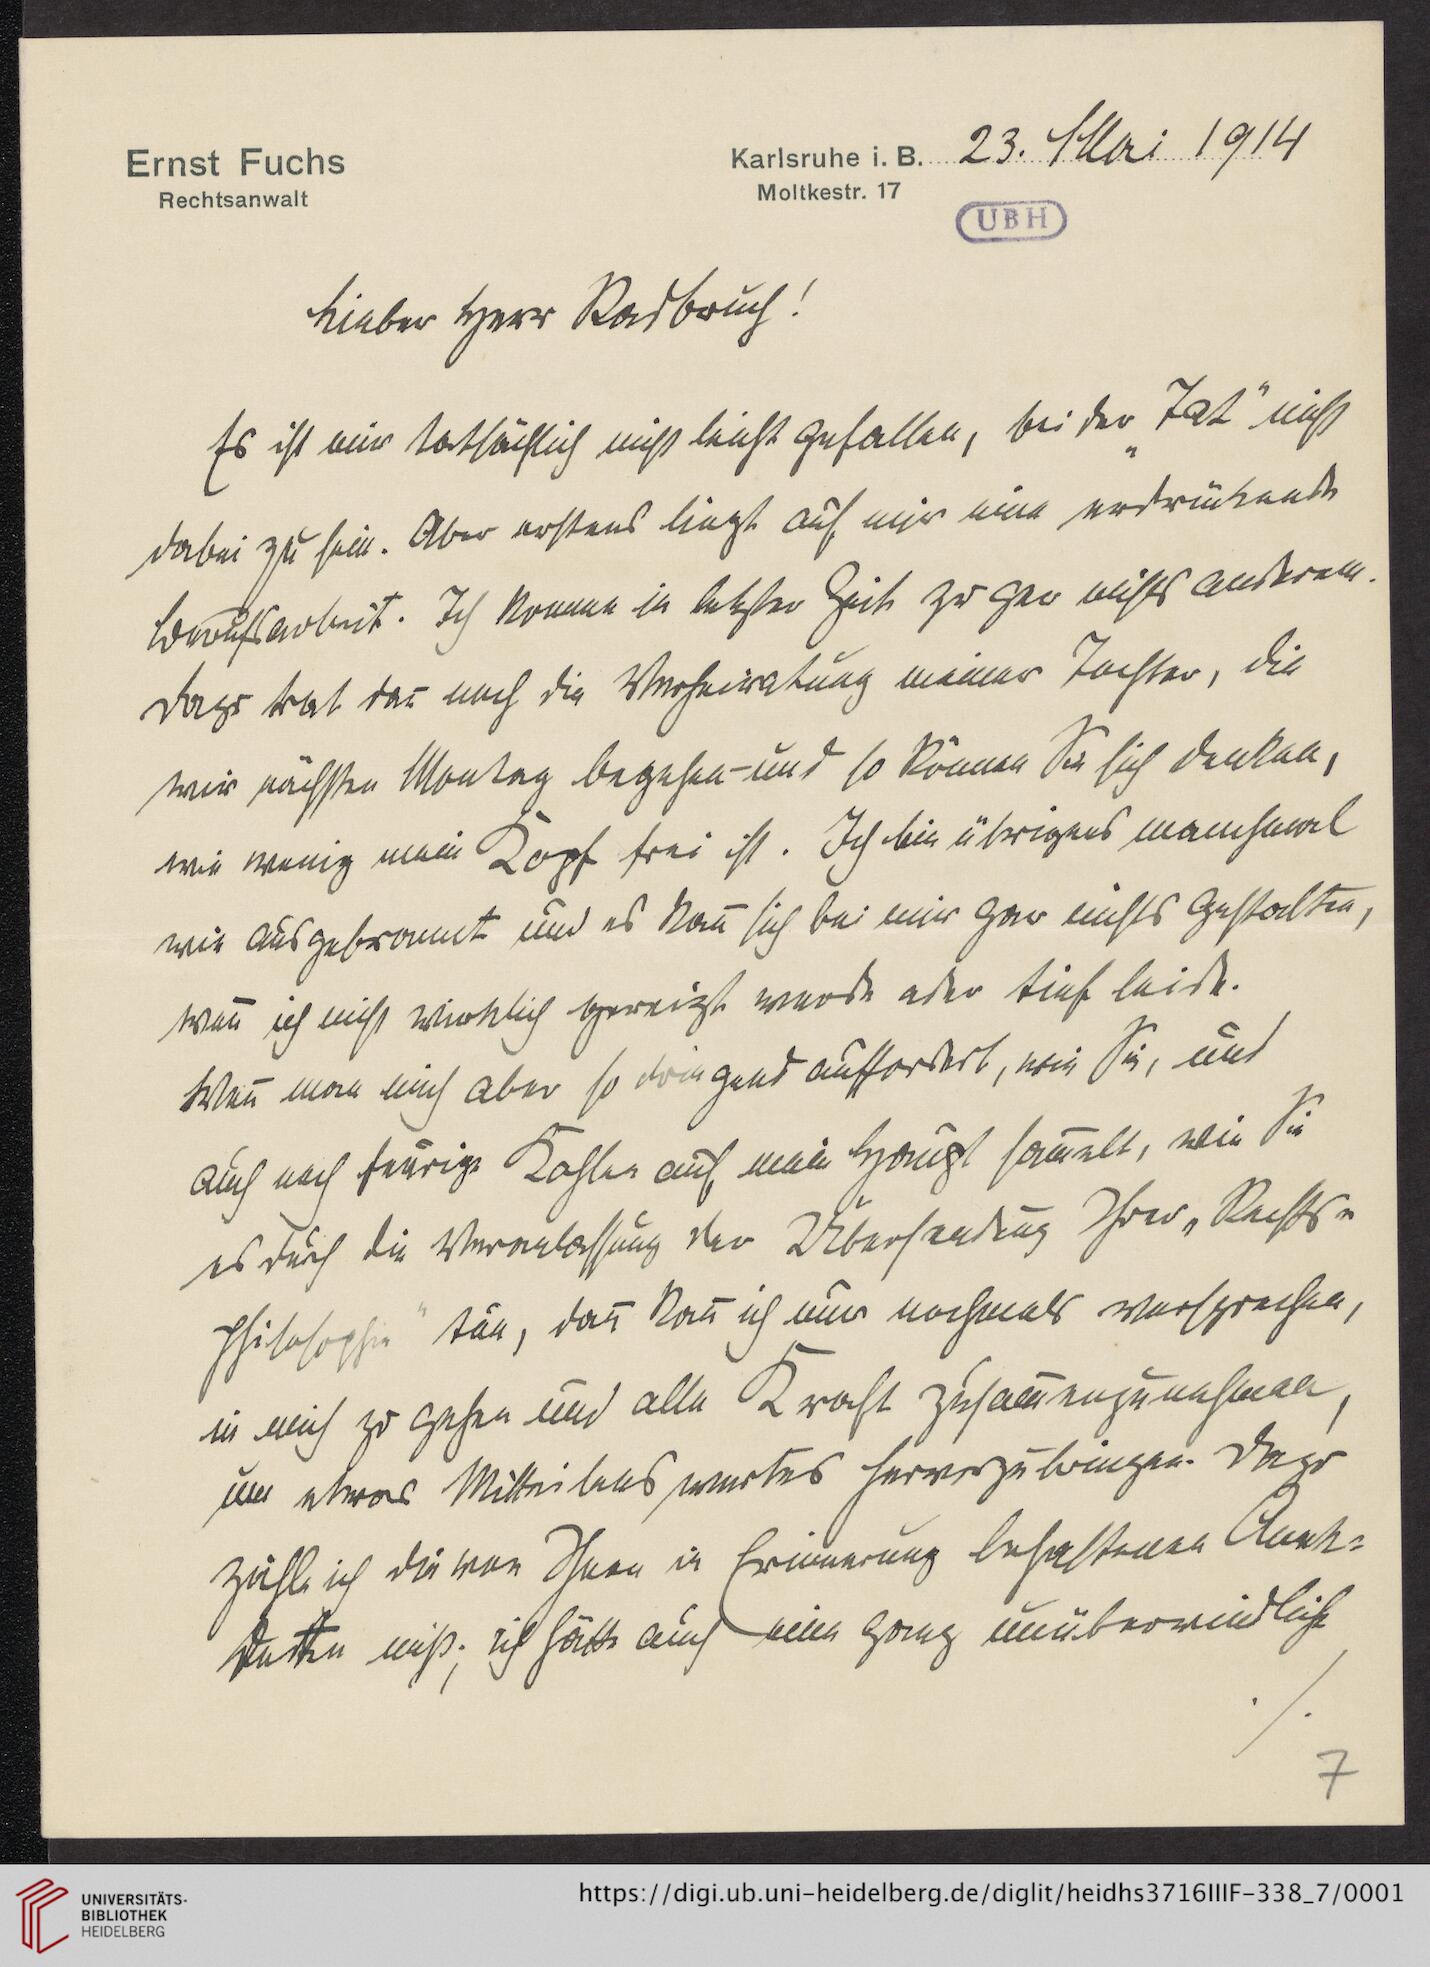 Ernst Fuchs
Rechtsanwalt
Karlsruhe i. B. 23. Mai 1914
Moltkestr. 17
UBH
Lieber Herr Radbruch!
Es ist mir tatsächlich nicht leicht gefallen, bei der „Tat“ nicht
dabei zu sein. Aber erstens liegt auf mir eine erdrückende
Berufsarbeit. Ich komme in letzter Zeit zu gar nichts anderem.
Dazu trat dan̅ noch die Verheiratung meiner Tochter, die
wir nächsten Montag begehen – und so können Sie sich denken,
wie wenig mein Kopf frei ist. Ich bin übrigens manchmal
wie ausgebrannt und es kan̅ sich bei mir gar nichts gestalten,
wen̅ ich nicht wirklich gereizt werde oder tief leide.
Wen̅ man mich aber so dringend auffordert, wie Sie, und
auch noch feurige Kohlen auf mein Haupt sam̅elt, wie Sie
es durch die Veranlassung der Übersendung Ihrer „Rechts-
philosophie“ tun, dan̅ kan̅ ich nur nochmals versprechen,
in mich zu gehen und alle Kraft zusam̅enzunehmen,
um etwas Mitteilenswertes hervorzubringen. Dazu
zähle ich die von Ihnen in Erinnerung behaltenen Anek-
doten nicht; ich hätte auch eine ganz unüberwindliche
./.
7
UNIVERSITÄTS-
BIBLIOTHEK
HEIDELBERG
https://digi.ub.uni-heidelberg.de/diglit/heidhs3716IIIF-338_7/0001